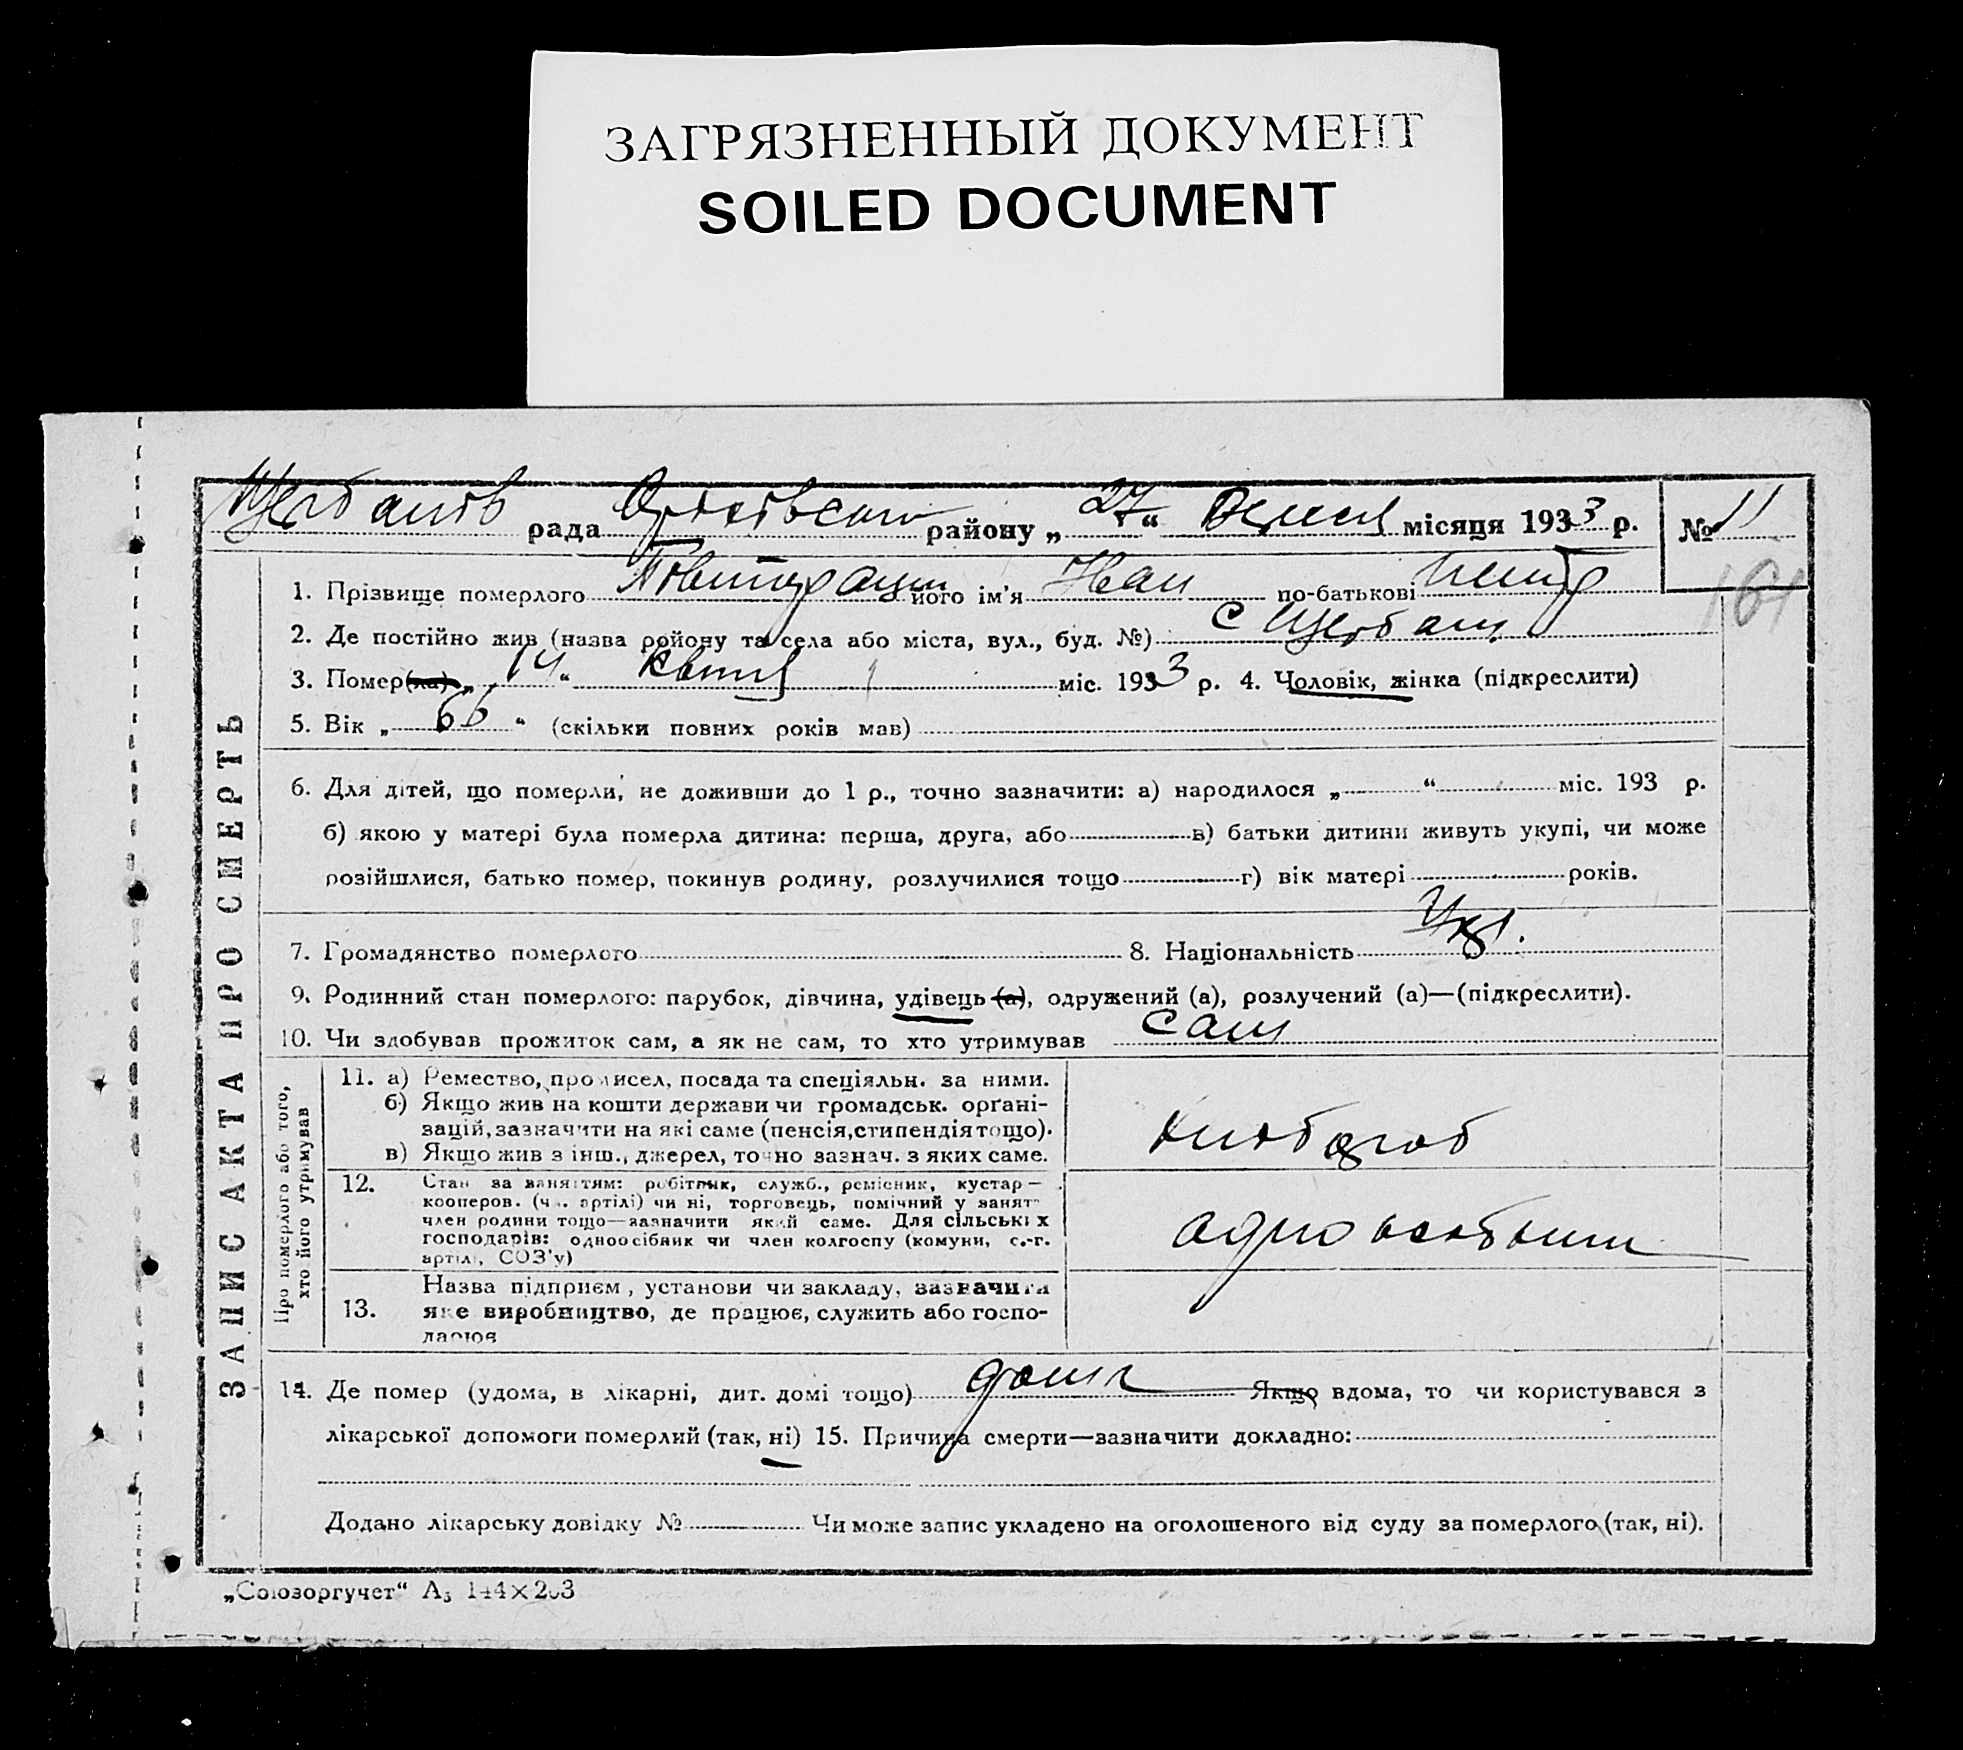 ЗАГРЯЗНЕННЫЙ ДОКУМЕНТ
SOILED DOCUMENT
рада району „ 27 “ місяця 1933 р. № 11
161
ЗАПИС АКТА ПРО СМЕРТЬ
1. Прізвище померлого його ім'я Иван по-батькові
2. Де постійно жив (назва району та села або міста, вул., буд. №) с
3. Помер(ла) „ 14 “ міс. 1933 р. 4. Чоловік, жінка (підкреслити)
5. Вік „ 66 “ (скільки повних років мав)
6. Для дітей, що померли, не доживши до 1 р., точно зазначити: а) народилося „ “ міс. 193 р.
б) якою у матері була померла дитина: перша, друга, або в) батьки дитини живуть укупі, чи може
розійшлися, батько помер, покинув родину, розлучилися тощо г) вік матері років.
7. Громадянство померлого 8. Національність Укр.
9. Родинний стан померлого: парубок, дівчина, удівець (а), одружений (а), розлучений (а)—(підкреслити).
10. Чи здобував прожиток сам, а як не сам, то хто утримував сам
Про померлого або того,
хто його утримував
11. а) Ремество, промисел, посада та спеціяльн. за ними.
б) Якщо жив на кошти держави чи громадськ. орґані-
зацій, зазначити на які саме (пенсія, стипендія тощо).
в) Якщо жив з інш., джерел, точно зазнач. з яких саме.
хлібороб
12. Стан за заняттям: робітник, служб., ремісник, кустар—
кооперов. (чл. артілі) чи ні, торговець, помічний у занятт
член родини тощо—зазначити який саме. Для сільських
господарів: одноосібник чи член колгоспу (комуни, с.-г.
артілі, СОЗ'у)
13. Назва підприєм, установи чи закладу, зазначити
яке виробництво, де працює, служить або госпо-
дарює
14. Де помер (удома, в лікарні, дит. домі тощо) дома Якщо вдома, то чи користувався з
лікарської допомоги померлий (так, ні) 15. Причина смерти—зазначити докладно:
Додано лікарську довідку № Чи може запис укладено на оголошеного від суду за померлого (так, ні).
„Союзоргучет“ А5 144×203